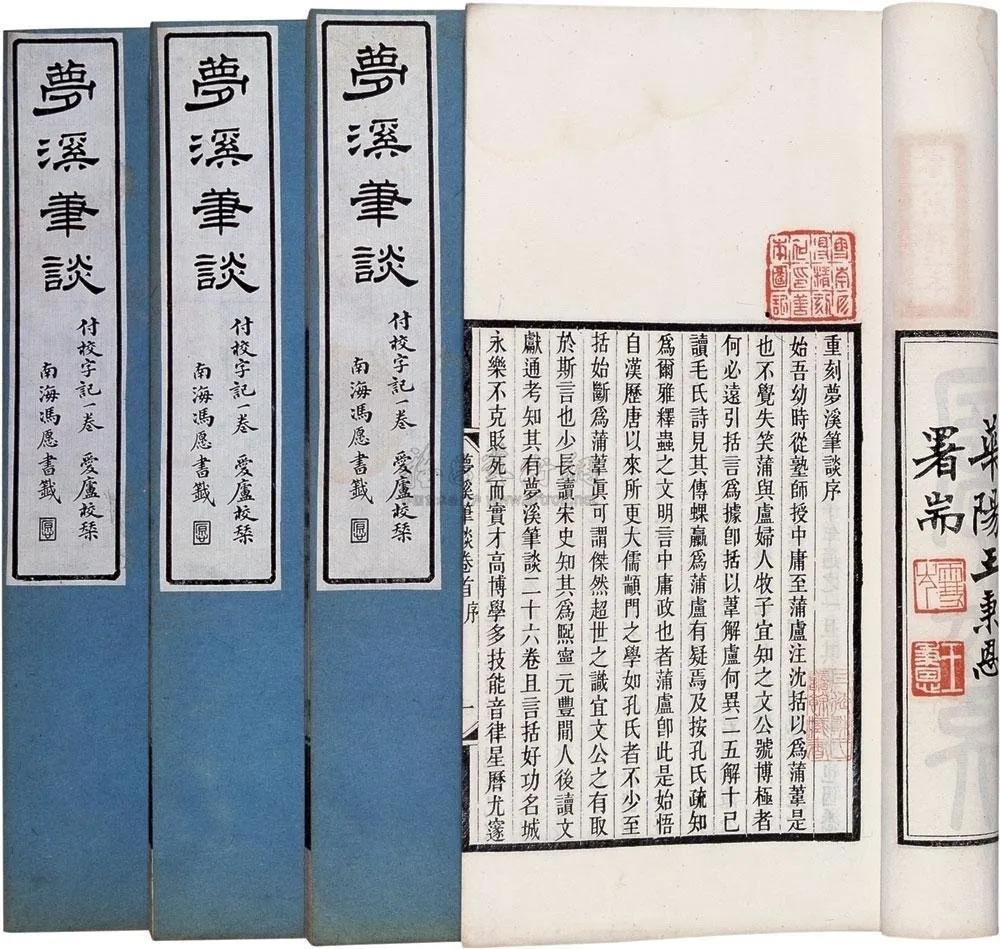 華陽王秉恩
署耑
王秉恩
重刻夢溪筆談序
始吾幼時從塾師授中庸至蒲盧注沈括以爲蒲葦是
也不覺失笑蒲與盧婦人牧子宜知之文公號博極者
何必遠引括言爲據卽括以葦解盧何異二五解十己
讀毛氏詩見其傳蜾蠃爲蒲盧有疑焉及按孔氏疏知
爲爾雅釋蟲之文明言中庸政也者蒲盧卽此是始悟
自漢歷唐以來所更大儒顓門之學如孔氏者不少至
括始斷爲蒲葦眞可謂傑然超世之識宜文公之有取
於斯言也少長讀宋史知其爲熙寧元豐間人後讀文
獻通考知其有夢溪筆談二十六卷且言括好功名城
永樂不克貶死而實才高博學多技能音律星曆尤邃
夢溪筆談卷首 序 一
夢溪筆談
付校字記一卷 愛廬校琹
南海馮愿書籖
夢溪筆談
付校字記一卷 愛廬校琹
南海馮愿書籖
夢溪筆談
付校字記一卷 愛廬校琹
南海馮愿書籖